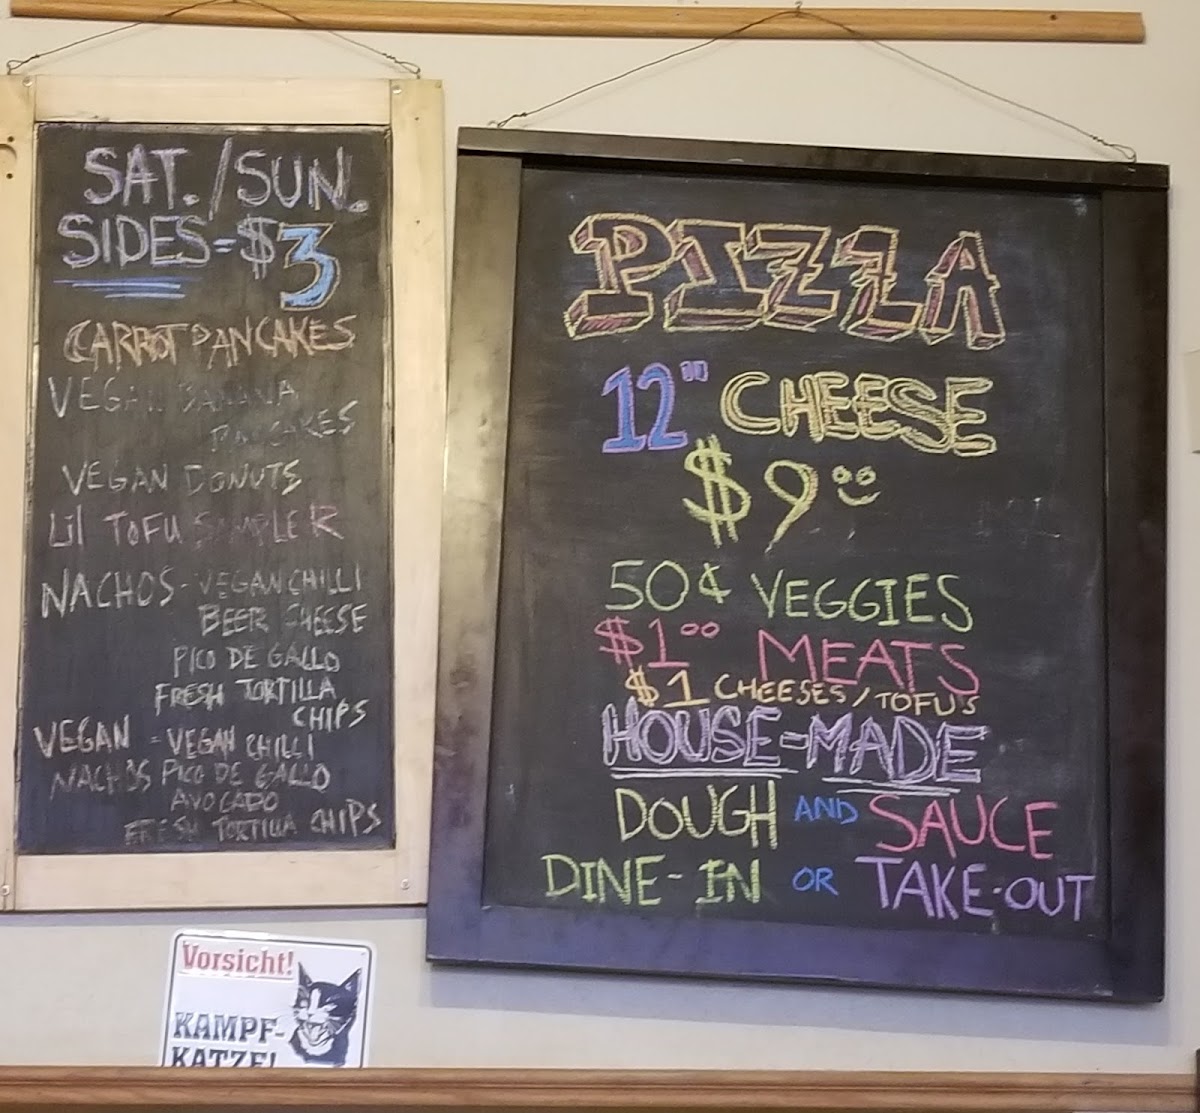 SAT./SUN.
SIDES=$3
CARROT PANCAKES
VEGAN BANANA
PANCAKES
VEGAN DONUTS
Lil TOFU SAMPLER
NACHOS - VEGAN CHILLI
BEER CHEESE
PICO DE GALLO
FRESH TORTILLA
CHIPS
VEGAN = VEGAN CHILLI
NACHOS PICO DE GALLO
AVOCADO
FRESH TORTILLA CHIPS
PIZZA
12" CHEESE
$9
50¢ VEGGIES
$1.00 MEATS
$1 CHEESES/TOFUS
HOUSE-MADE
DOUGH AND SAUCE
DINE-IN OR TAKE-OUT
Vorsicht!
KAMPF-
KATZE!